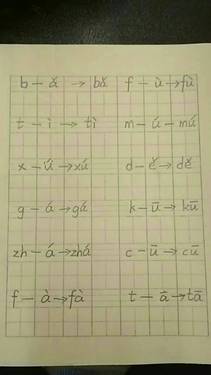 b — ǎ → bǎ f — ù → fù
t — ì → tì m — ú — mú
x — ǘ → xú d — ě → dě
g — á → gá k — ū → kū
zh — á → zhá c — ū → cū
f — à → fà t — ā → tā